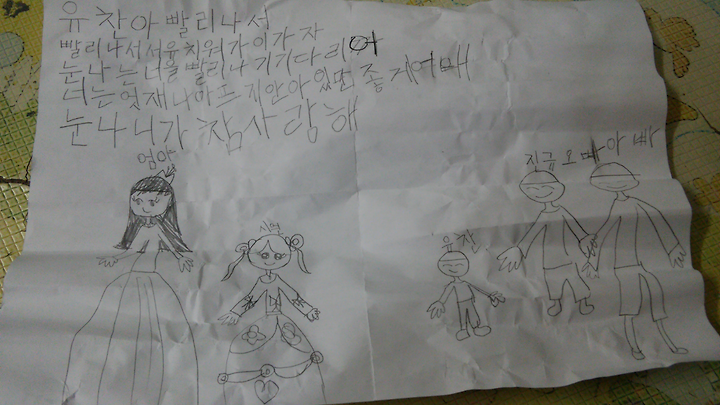 유찬아 빨리나서
빨리나서서유치원가이가자
눈나는너을빨리나기기다리어
너는엊재나아프지안아있면좋게어매
눈나니가참사랑해
엄아
진금오빠 아빠
유찬